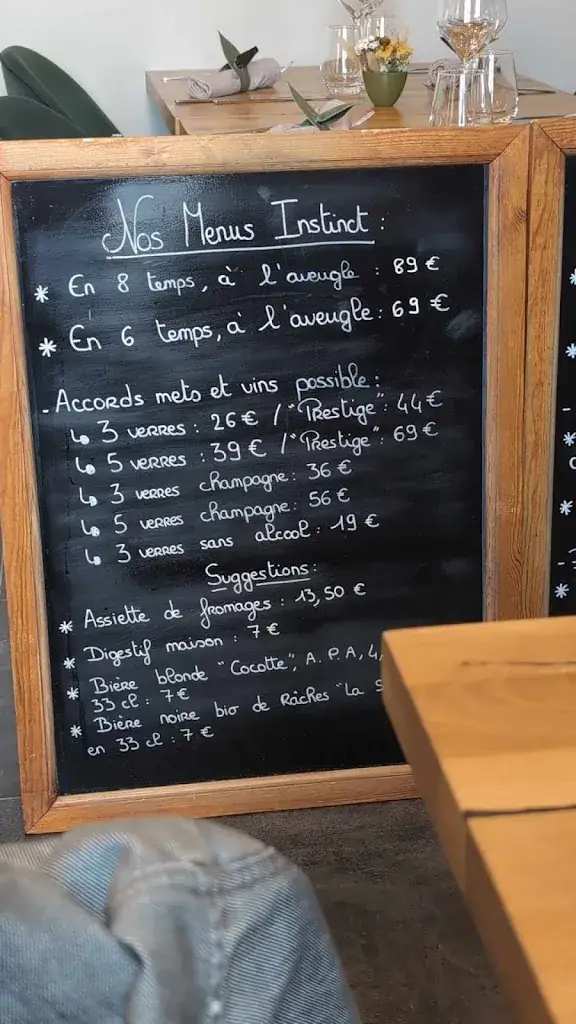 Nos Menus Instinct :
* En 8 temps, à l'aveugle : 89 €
* En 6 temps, à l'aveugle : 69 €
- Accords mets et vins possible :
↳ 3 verres : 26 € / "Prestige" : 44 €
↳ 5 verres : 39 € / "Prestige" : 69 €
↳ 3 verres champagne : 36 €
↳ 5 verres champagne : 56 €
↳ 3 verres sans alcool : 19 €
Suggestions :
* Assiette de fromages : 13,50 €
* Digestif maison : 7 €
* Bière blonde "Cocotte", A.P.A, 4,
33 cl : 7 €
* Bière noire bio de Râches "La S
en 33 cl : 7 €